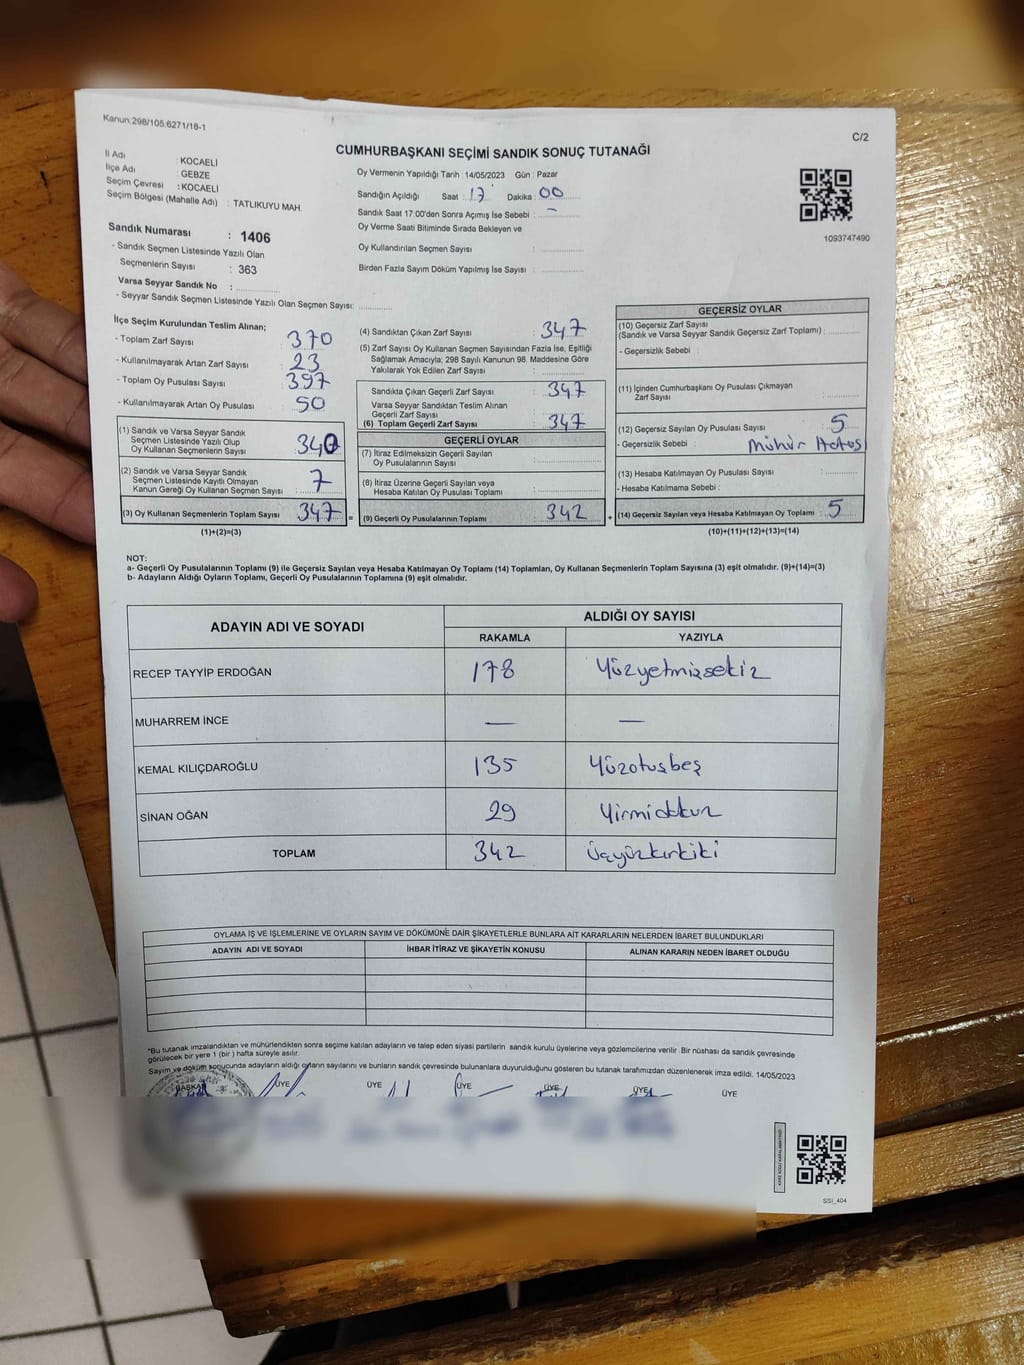 Kanun:298/105;6271/18-1
C/2
CUMHURBAŞKANI SEÇİMİ SANDIK SONUÇ TUTANAĞI
İl Adı : KOCAELİ
İlçe Adı : GEBZE
Seçim Çevresi : KOCAELİ
Seçim Bölgesi (Mahalle Adı) : TATLIKUYU MAH.
Oy Vermenin Yapıldığı Tarih 14/05/2023 Gün : Pazar
Sandığın Açıldığı Saat : 17 Dakika : 00
Sandık Saat 17.00'den Sonra Açımış İse Sebebi : –
Oy Verme Saati Bitiminde Sırada Bekleyen ve
Oy Kullandırılan Seçmen Sayısı :
Birden Fazla Sayım Döküm Yapılmış İse Sayısı :
1093747490
Sandık Numarası : 1406
- Sandık Seçmen Listesinde Yazılı Olan
Seçmenlerin Sayısı : 363
Varsa Seyyar Sandık No :
- Seyyar Sandık Seçmen Listesinde Yazılı Olan Seçmen Sayısı:
İlçe Seçim Kurulundan Teslim Alınan;
- Toplam Zarf Sayısı : 370
- Kullanılmayarak Artan Zarf Sayısı : 23
- Toplam Oy Pusulası Sayısı : 397
- Kullanılmayarak Artan Oy Pusulası : 50
(1) Sandık ve Varsa Seyyar Sandık
Seçmen Listesinde Yazılı Olup
Oy Kullanan Seçmenlerin Sayısı : 340
(2) Sandık ve Varsa Seyyar Sandık
Seçmen Listesinde Kayıtlı Olmayan
Kanun Gereği Oy Kullanan Seçmen Sayısı : 7
(3) Oy Kullanan Seçmenlerin Toplam Sayısı : 347 =
(1)+(2)=(3)
(4) Sandıktan Çıkan Zarf Sayısı : 347
(5) Zarf Sayısı Oy Kullanan Seçmen Sayısından Fazla İse, Eşitliği
Sağlamak Amacıyla; 298 Sayılı Kanunun 98. Maddesine Göre
Yakılarak Yok Edilen Zarf Sayısı :
Sandıkta Çıkan Geçerli Zarf Sayısı : 347
Varsa Seyyar Sandıktan Teslim Alınan
Geçerli Zarf Sayısı :
(6) Toplam Geçerli Zarf Sayısı : 347
GEÇERLİ OYLAR
(7) İtiraz Edilmeksizin Geçerli Sayılan
Oy Pusulalarının Sayısı :
(8) İtiraz Üzerine Geçerli Sayılan veya
Hesaba Katılan Oy Pusulası Toplamı :
(9) Geçerli Oy Pusulalarının Toplamı : 342 +
GEÇERSİZ OYLAR
(10) Geçersiz Zarf Sayısı
(Sandık ve Varsa Seyyar Sandık Geçersiz Zarf Toplamı) :
- Geçersizlik Sebebi :
(11) İçinden Cumhurbaşkanı Oy Pusulası Çıkmayan
Zarf Sayısı :
(12) Geçersiz Sayılan Oy Pusulası Sayısı : 5
- Geçersizlik Sebebi : Mühür Hatası
(13) Hesaba Katılmayan Oy Pusulası Sayısı :
- Hesaba Katılmama Sebebi :
(14) Geçersiz Sayılan veya Hesaba Katılmayan Oy Toplamı : 5
(10)+(11)+(12)+(13)=(14)
NOT:
a- Geçerli Oy Pusulalarının Toplamı (9) ile Geçersiz Sayılan veya Hesaba Katılmayan Oy Toplamı (14) Toplamları, Oy Kullanan Seçmenlerin Toplam Sayısına (3) eşit olmalıdır. (9)+(14)=(3)
b- Adayların Aldığı Oyların Toplamı, Geçerli Oy Pusulalarının Toplamına (9) eşit olmalıdır.
ADAYIN ADI VE SOYADI ALDIĞI OY SAYISI
RAKAMLA YAZIYLA
RECEP TAYYİP ERDOĞAN 178 Yüzyetmişsekiz
MUHARREM İNCE — —
KEMAL KILIÇDAROĞLU 135 Yüzotuzbeş
SİNAN OĞAN 29 Yirmidokuz
TOPLAM 342 Üçyüzkırkiki
OYLAMA İŞ VE İŞLEMLERİNE VE OYLARIN SAYIM VE DÖKÜMÜNE DAİR ŞİKAYETLERLE BUNLARA AİT KARARLARIN NELERDEN İBARET BULUNDUKLARI
ADAYIN ADI VE SOYADI İHBAR İTİRAZ VE ŞİKAYETİN KONUSU ALINAN KARARIN NEDEN İBARET OLDUĞU
*Bu tutanak imzalandıktan ve mühürlendikten sonra seçime katılan adayların ve talep eden siyasi partilerin sandık kurulu üyelerine veya gözlemcilerine verilir .Bir nüshası da sandık çevresinde
görülecek bir yere 1 (bir ) hafta süreyle asılır.
Sayım ve döküm sonucunda adayların aldığı oyların sayılarını ve bunların sandık çevresinde bulunanlara duyurulduğunu gösteren bu tutanak tarafımızdan düzenlenerek imza edildi. 14/05/2023
BAŞKAN ÜYE ÜYE ÜYE ÜYE ÜYE ÜYE
SSI_404